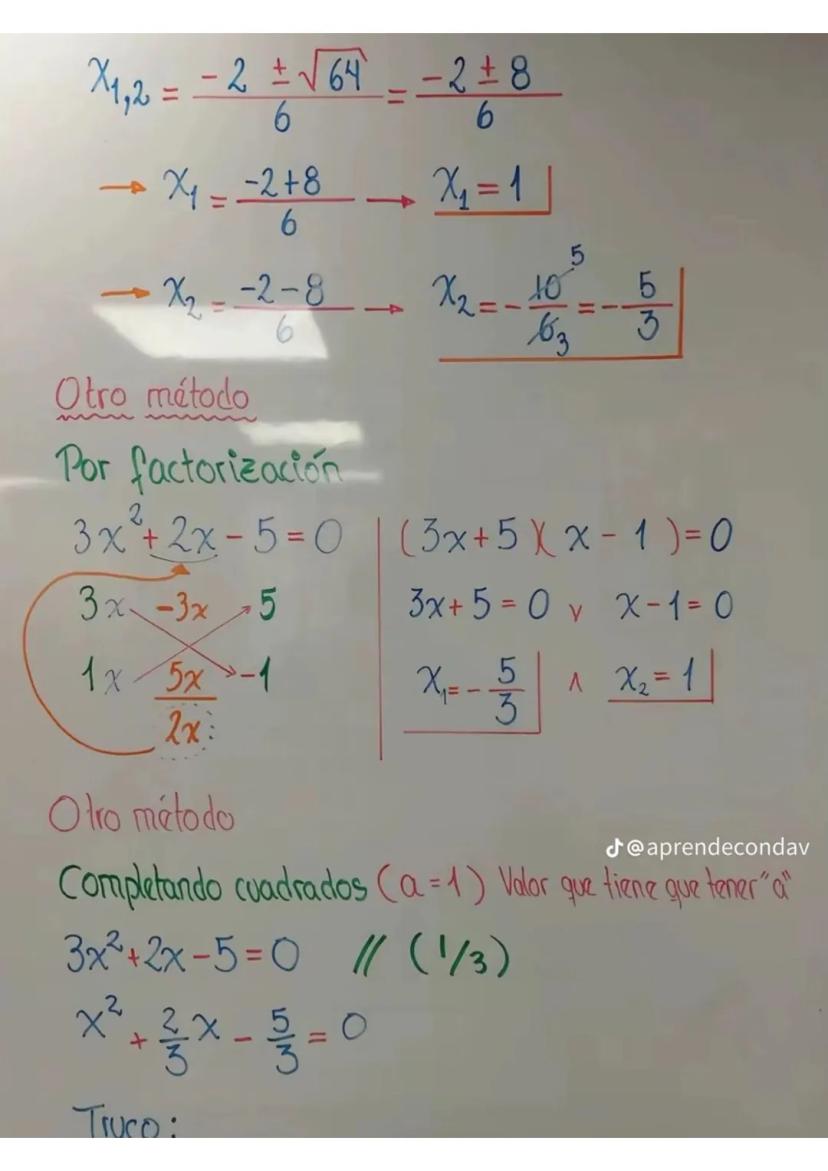 x₁,₂ = (-2 ± √64)/6 = (-2 ± 8)/6
→ x₁ = (-2+8)/6 → x₁ = 1
→ x₂ = (-2-8)/6 → x₂ = -10/6 5 3 = -5/3
Otro método
Por factorización
3x² + 2x - 5 = 0
3x -3x 5
1x 5x -1
2x
(3x+5)(x-1)=0
3x+5=0 v x-1=0
x₁=-5/3 ∧ x₂=1
Otro método
@aprendecondav
Completando cuadrados (a=1) Valor que tiene que tener "a"
3x²+2x-5=0 // (1/3)
x² + 2/3 x - 5/3 = 0
Truco: